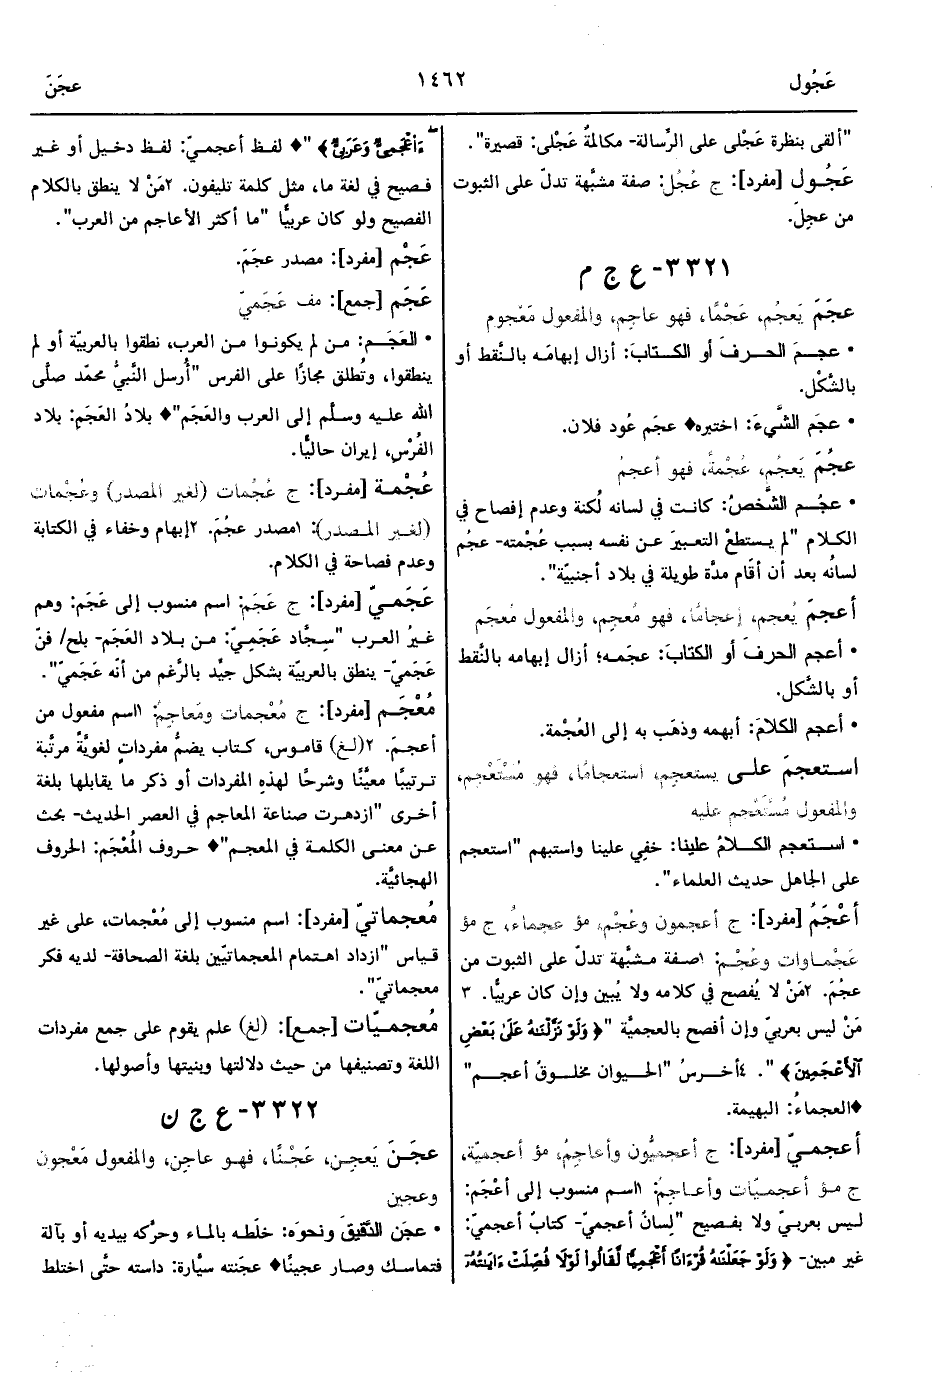 عَجُول
١٤٦٢
عجَنَ
"ألقى بنظرة عَجْلى على الرِّسالة- مكالمةٌ عَجْلى: قصيرة".
عَجُول [مفرد]: ج عُجُل: صفة مشبَّهة تدلّ على الثبوت
من عجِلَ.
٣٣٢١- ع ج م
عجَمَ يَعجُم، عَجْمًا، فهو عاجِم، والمفعول مَعْجوم
• عجمَ الحرفَ أو الكتابَ: أزال إبهامَه بالنَّقط أو
بالشَّكْل.
• عجَم الشَّيءَ: اختبره♦ عجَم عُود فلان.
عجُمَ يَعجُم، عُجْمَةً، فهو أعجمُ
• عجُم الشَّخصُ: كانت في لسانه لُكنة وعدم إفصاح في
الكلام "لم يستطعْ التعبيرَ عن نفسه بسبب عُجْمته- عجُم
لسانُه بعد أن أقام مدّة طويلة في بلاد أجنبيّة".
أعجمَ يُعجم، إعجامًا، فهو مُعجِم، والمفعول مُعجَم
• أعجم الحرفَ أو الكتابَ: عجَمه؛ أزال إبهامه بالنَّقط
أو بالشَّكل.
• أعجم الكلامَ: أبهمه وذهَب به إلى العُجْمة.
استعجمَ على يستعجم، استعجامًا، فهو مُسْتَعْجِم،
والمفعول مُسْتَعْجَم عليه
• استعجم الكلامُ علينا: خفِي علينا واستبهم "استعجم
على الجاهل حديث العلماء".
أعْجَمُ [مفرد]: ج أعجمون وعُجْم، مؤ عجماءُ، ج مؤ
عَجْماوات وعُجْم: ١صفة مشبَّهة تدلّ على الثبوت من
عجُمَ. ٢مَنْ لا يُفصح في كلامه ولا يُبين وإن كان عربيًّا. ٣
مَنْ ليس بعربيّ وإن أفصح بالعجميَّة "﴿ وَلَوْ نَزَّلْنَٰهُ عَلَىٰ بَعْضِ
ٱلْأَعْجَمِينَ ﴾". ٤أخرسُ "الحيوان مخلوقٌ أعجم"
♦العجماءُ: البهيمة.
أعجميّ [مفرد]: ج أعجميُّون وأعاجِمُ، مؤ أعجميّة،
ج مؤ أعجميّات وأعاجِمُ: ١اسم منسوب إلى أعْجَم:
ليس بعربيّ ولا بفصيح "لِسانٌ أعجميّ- كتابٌ أعجميّ:
غير مبين- ﴿ وَلَوْ جَعَلْنَٰهُ قُرْءَانًا أَعْجَمِيًّا لَّقَالُوا۟ لَوْلَا فُصِّلَتْ ءَايَٰتُهُۥٓ
ءَا۬عْجَمِىٌّ وَعَرَبِىٌّ ﴾ "♦ لفظ أعجميّ: لفظ دخيل أو غير
فصيح في لغة ما، مثل كلمة تليفون. ٢مَنْ لا ينطق بالكلام
الفصيح ولو كان عربيًّا "ما أكثر الأعاجم من العرب".
عَجْم [مفرد]: مصدر عجَمَ.
عَجَم [جمع]: مف عَجَميّ
• العَجَم: من لم يكونوا من العرب، نطقوا بالعربيّة أو لم
ينطقوا، وتُطلق مجازًا على الفرس "أُرسل النَّبيُّ محمّد صلّى
الله عليه وسلّم إلى العرب والعَجَم"♦ بلادُ العَجَم: بلاد
الفُرْس، إيران حاليًّا.
عُجْمة [مفرد]: ج عُجُمات (لغير المصدر) وعُجْمات
(لغير المصدر): ١مصدر عجُمَ. ٢إبهام وخفاء في الكتابة
وعدم فصاحة في الكلام.
عَجَميّ [مفرد]: ج عَجَم: اسم منسوب إلى عَجَم: وهم
غيرُ العرب "سِجَّاد عَجَميّ: من بلاد العَجَم- بلح/ فنّ
عَجَميّ- ينطق بالعربيّة بشكل جيِّد بالرَّغم من أنّه عَجَميّ".
مُعْجَم [مفرد]: ج مُعْجمات ومَعاجِمُ: ١اسم مفعول من
أعجمَ. ٢(لغ) قاموس، كتاب يضمُّ مفرداتٍ لغويَّةً مرتَّبة
ترتيبًا معيَّنًا وشرحًا لهذه المفردات أو ذكر ما يقابلها بلغة
أخرى "ازدهرت صناعة المعاجم في العصر الحديث- بحث
عن معنى الكلمة في المعجم"♦ حروف المُعْجَم: الحروف
الهجائيَّة.
مُعجماتيّ [مفرد]: اسم منسوب إلى مُعْجمات، على غير
قياس "ازداد اهتمام المعجماتيّين بلغة الصحافة- لديه فكر
معجماتيّ".
مُعجميّات [جمع]: (لغ) علم يقوم على جمع مفردات
اللغة وتصنيفها من حيث دلالتها وبنيتها وأصولها.
٣٣٢٢- ع ج ن
عجَنَ يَعجِن، عَجْنًا، فهو عاجِن، والمفعول مَعْجون
وعجين
• عجَن الدَّقيقَ ونحوَه: خلَطه بالماء وحرَّكه بيديه أو بآلة
فتماسك وصار عجينًا♦ عجَنته سيَّارة: داسته حتَّى اختلط